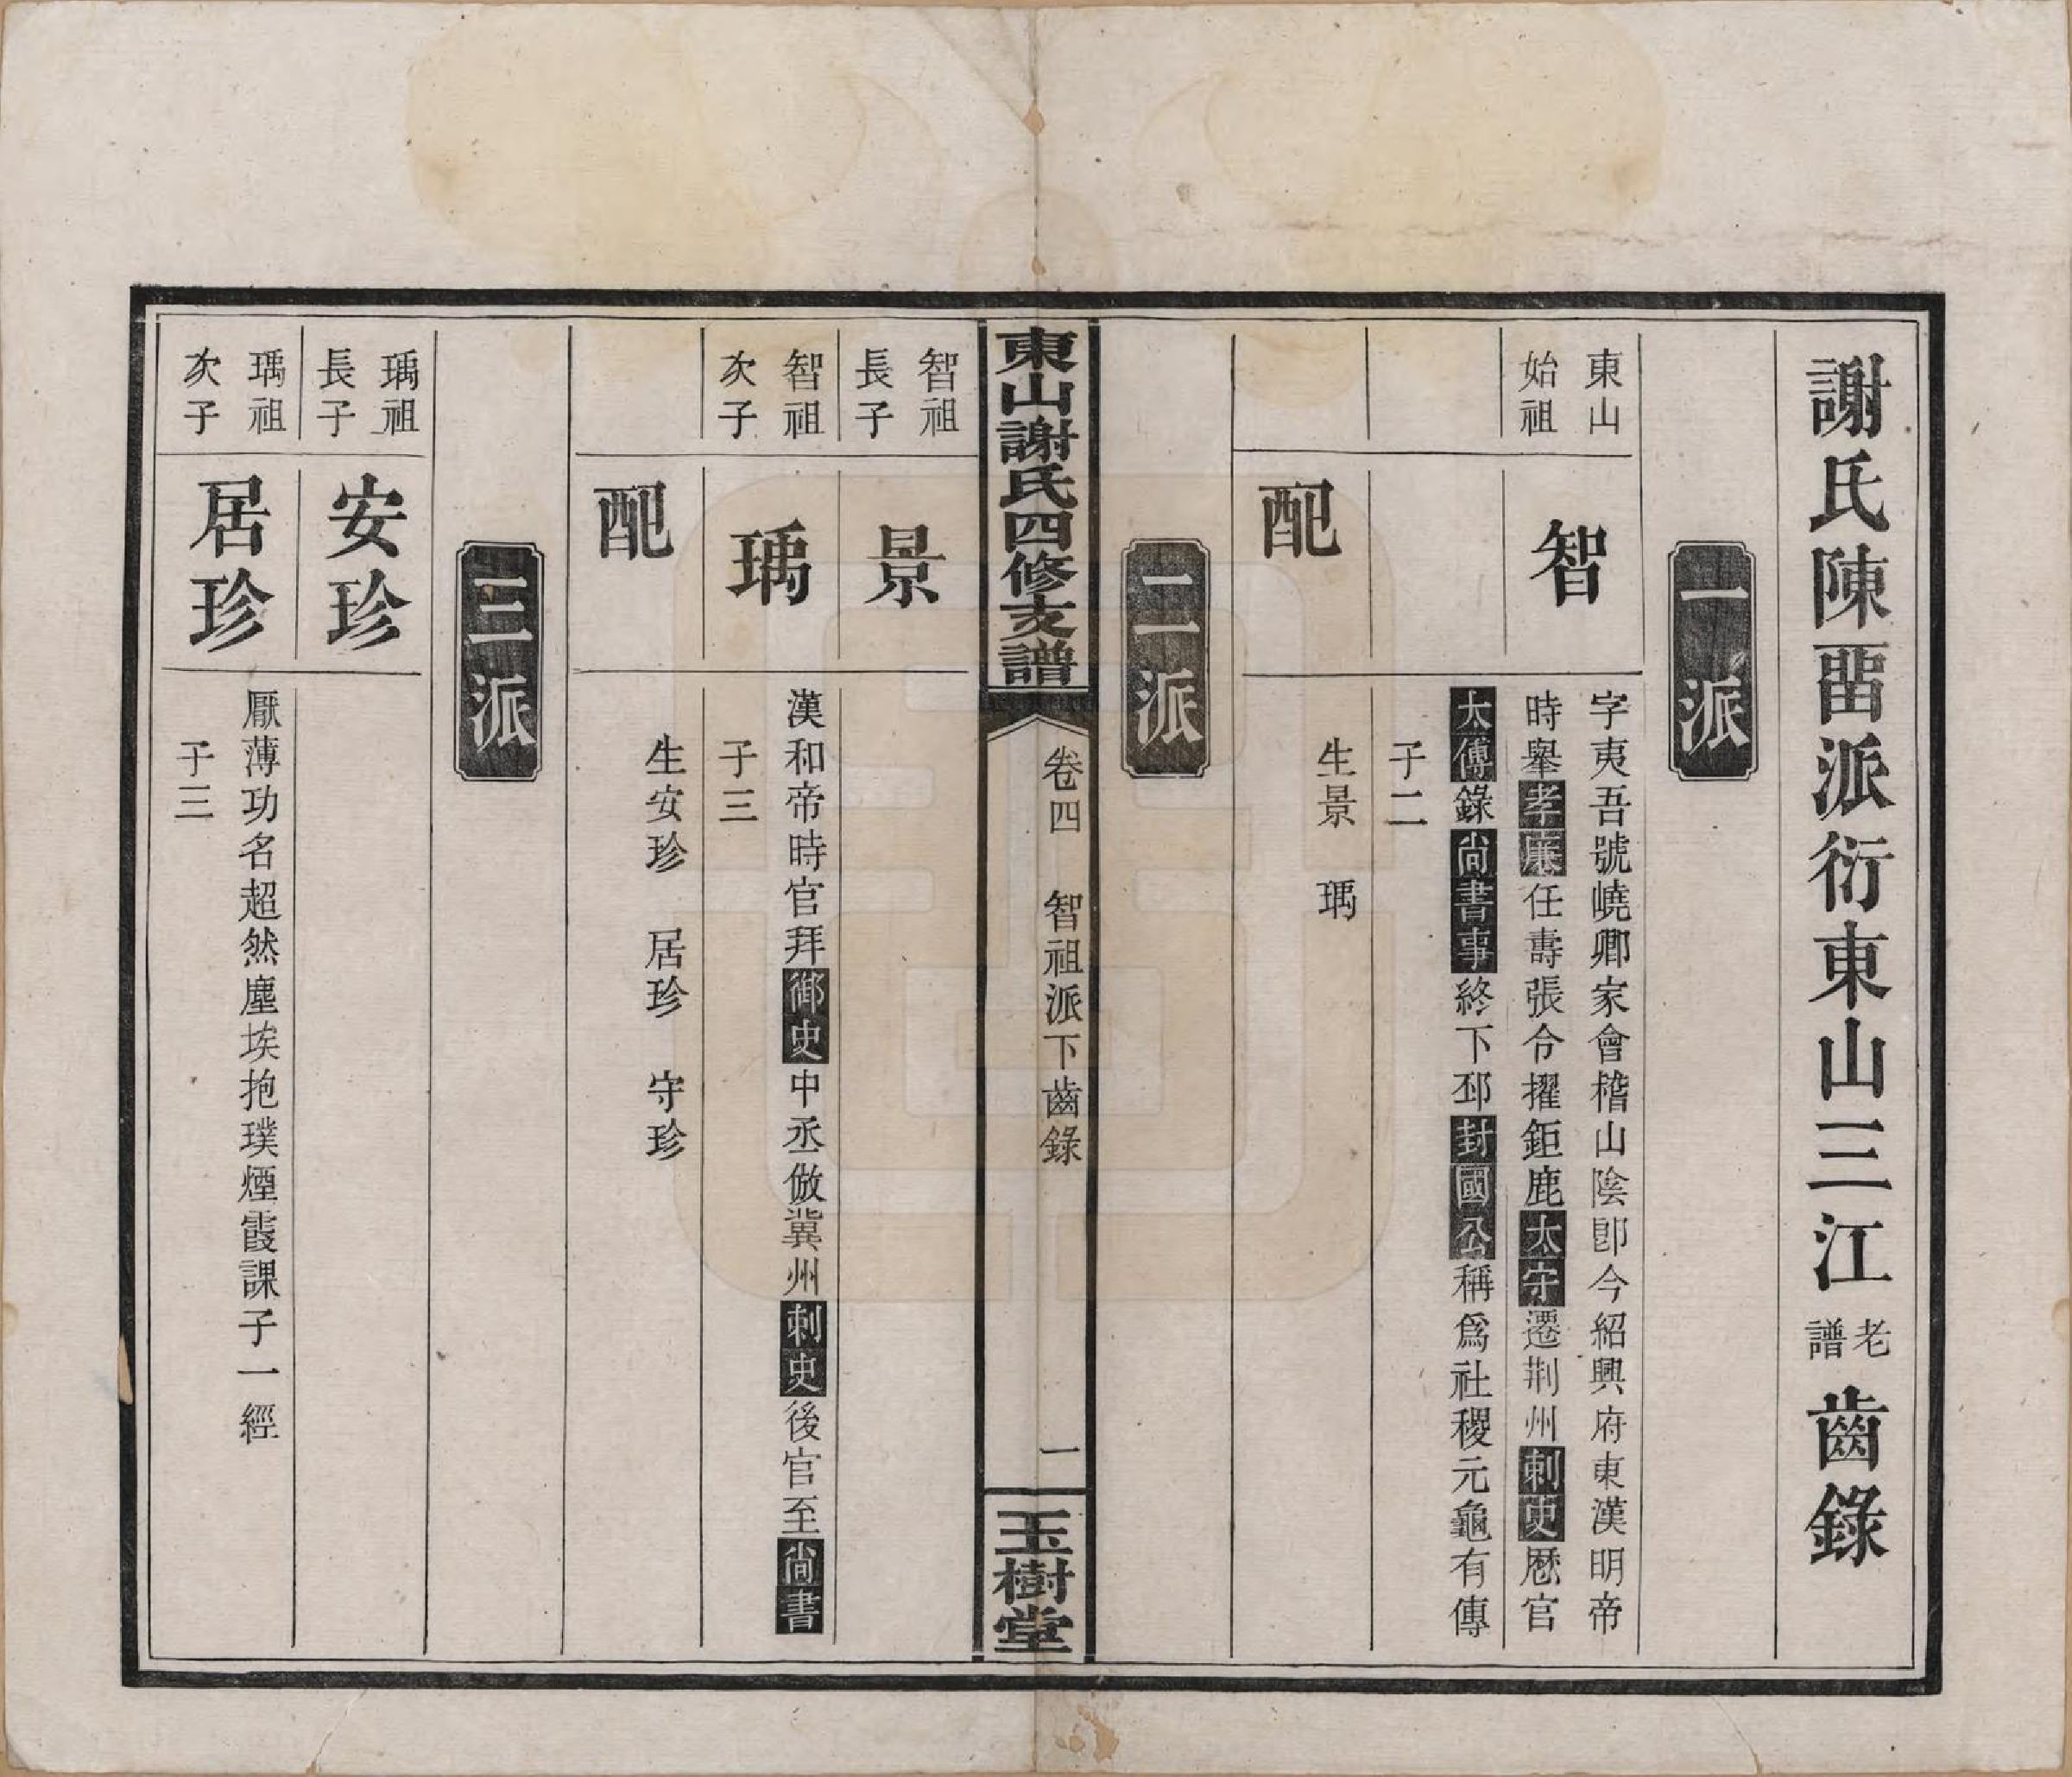 謝氏陳畱派衍東山三江老譜齒錄
一派
東山
始祖
智
字夷吾號嶢卿家會稽山陰卽今紹興府東漢明帝
時舉孝廉任壽張令擢鉅鹿太守遷荆州刺史歷官
太傅錄尙書事終下邳封國公稱爲社稷元龜有傳
子二
配
生景　瑀
二派
東山謝氏四修支譜
卷四　智祖派下齒錄
一
玉樹堂
智祖
長子
景
智祖
次子
瑀
漢和帝時官拜御史中丞倣冀州刺史後官至尙書
子三
配
生安珍　居珍　守珍
三派
瑀祖
長子
安珍
瑀祖
次子
居珍
厭薄功名超然塵埃抱璞煙霞課子一經
子三